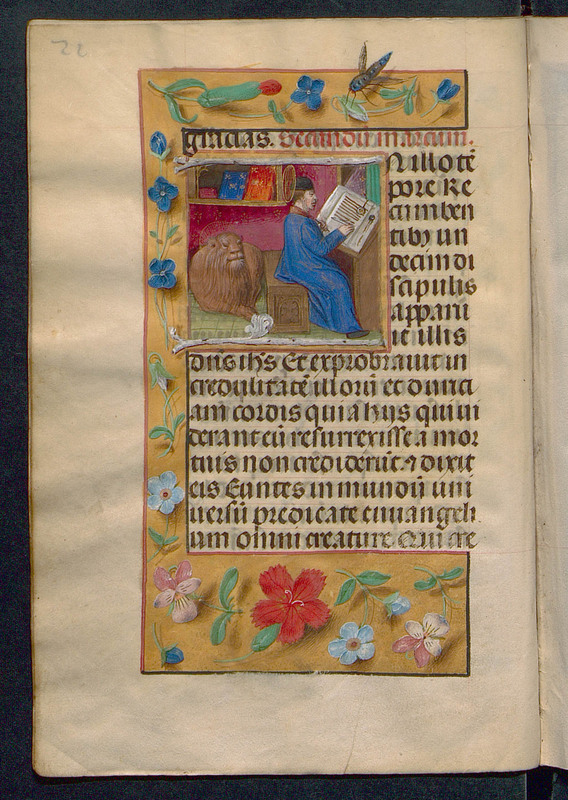 22
gracias. Secundū marcum.
N illo tē
pore Re
cumben
tibꝫ un
decim di
scipulis
apparu
it illis
dn̄s ih̄s Et exprobrauit in
credulitatē illorū et duriti
am cordis quia hijs qui ui
derant eū resurrexisse a mor
tuis non crediderūt. ⁊ dixit
eis Euntes in mundū uni
uersū predicate euuangeli
um omni creature. Qui cre